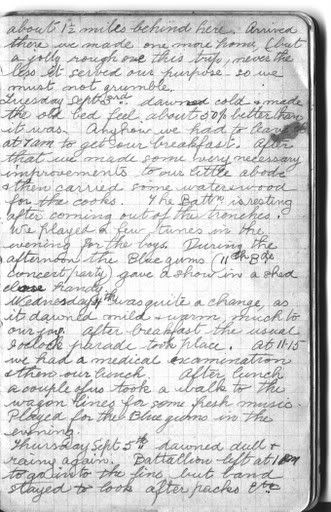 about 1½ miles behind here. Arrived
there we made one more home, (but
a jolly rough one this trip, never the
less it served our purpose so we
must not grumble.
Tuesday Sept 3rd dawned cold & made
the old bed feel about 50% better than
it was. Anyhow we had to leave it
at 7am to get our breakfast. After
that we made some very necessary
improvements to our little abode
& then carried some water & wood
for the cooks. The Battn is resting
after coming out of the trenches.
We played a few tunes in the
evening for the boys. During the
afternoon the Bluegums (11th Bde
concert party) gave a show in a shed
close handy.
Wednesday 4th was quite a change, as
it dawned mild & warm, much to
our joy. After breakfast the usual
9 oclock parade took place. At 11.15
we had a medical examination
& then our lunch. After lunch
a couple of us took a walk to the
wagon lines for some fresh music.
Played for the Blue gums in the
evening.
Thursday Sept 5th dawned dull &
rainy again. Battallion left at
to go into the line, but band
stayed to look after packs etc.